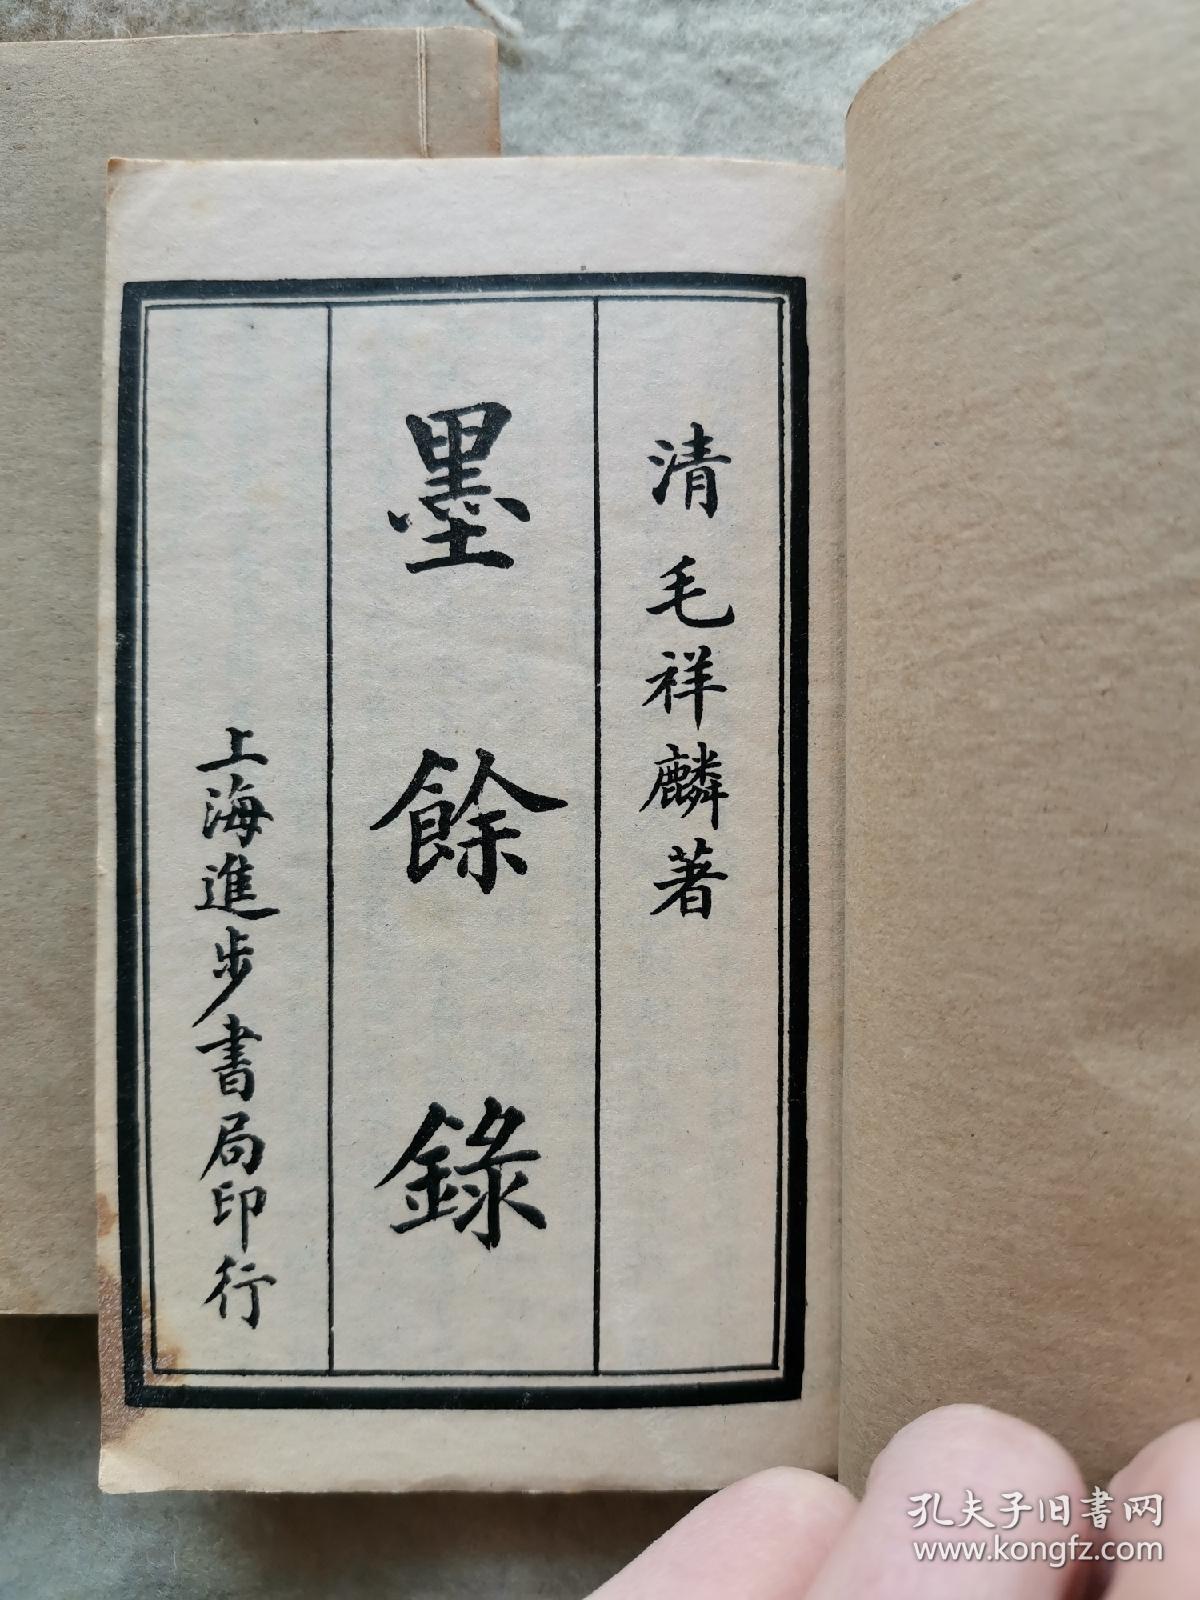 清毛祥麟著
墨餘錄
上海進步書局印行
孔夫子旧書网
www.kongfz.com